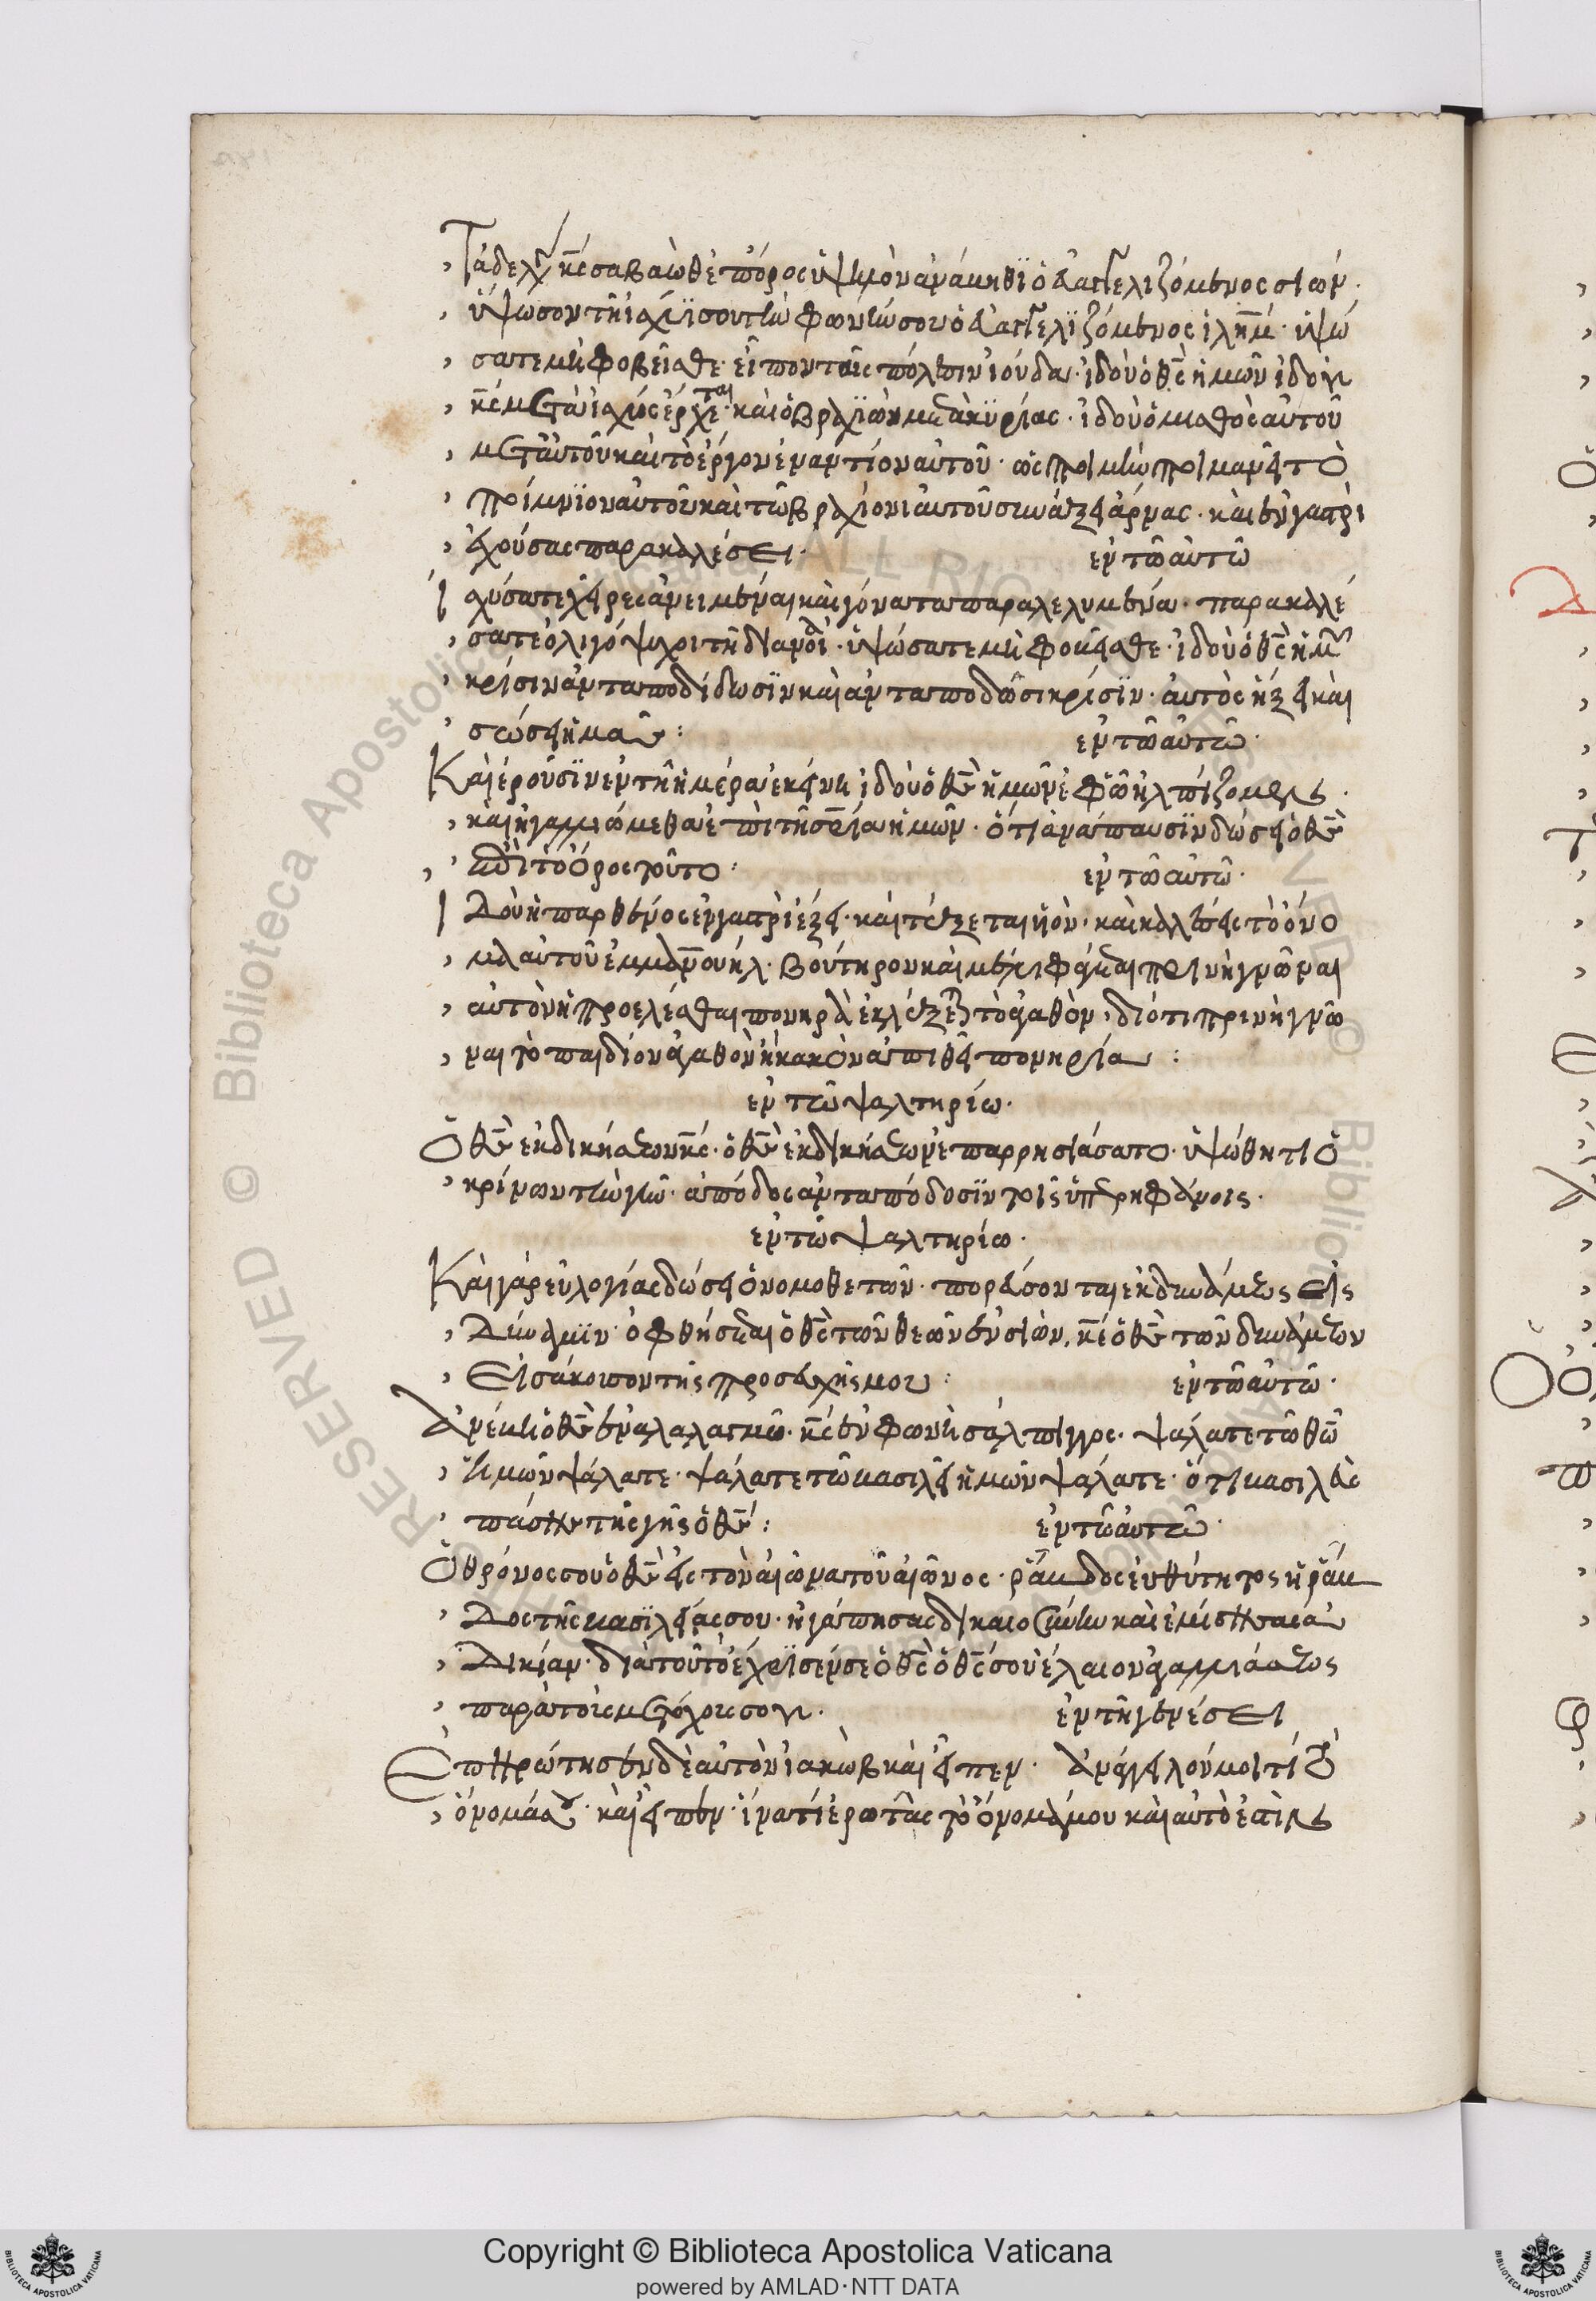 Τάδε λέγει κς σαβαώθ ἐπ' ὄρος ὑψηλὸν ἀνάμηθι ὁ εὐαγγελιζόμενος σιών.
ὕψωσον τῆ ἰσχύϊ σου τὴν φωνήν σου ὁ εὐαγγελϊζόμενος ἰλημ. ὑψώ
σατε μὴ φοβεῖσθε. εἶπον ταῖς πόλεσιν ἰούδα. ἰδοὺ ὁ θς ἡμῶν ἰδοὺ
κς μετὰ ἰσχύος ἔρχεται. καὶ ὁ βραχϊων μετὰ κϋρίας. ἰδοὺ ὁ μισθὸς αὐτοῦ
μετ' αὐτοῦ καὶ τὸ ἔργον ἐναντίον αὐτοῦ. ὡς ποιμὴν ποιμανεῖ τὸ
ποίμνϊον αὐτοῦ καὶ τῶ βραχίονι αὐτοῦ συνάξει ἄρνας. καὶ ἐν γαστρὶ
ἐχούσας παρακαλέσει. ἐν τῶ αὐτῶ
Ἰσχύσατε χεῖρες ἀνειμέναι καὶ γόνατα παραλελυμένα. παρακαλέ
σατε ὀλιγόψυχοι τῆ διανοί. ὑψώσατε μὴ φοβεῖσθε. ἰδοὺ ὁ θς ἡμ
κρίσιν ἀνταποδίδωσϊν καὶ ἀνταποδώσι κρίσϊν. αὐτὸς ἥξει καὶ
σώσει ἡμᾶς: ἐν τῶ αὐτῶ.
Καὶ ἐροῦσϊν ἐν τῆ ἡμέρα ἐκείνη ἰδοὺ ὁ θς ἡμῶν ἐφ' ᾧ ἠλπίζομεν.
καὶ ἠγαλλιώμεθα ἐπὶ τῆ σρία ἡμῶν. ὅτι ἀνάπαυσϊν δώσει ὁ θς
ἐπὶ τὸ ὄρος τοῦτο: ἐν τῶ αὐτῶ.
Ἰδοὺ ἡ παρθένος ἐν γαστρὶ ἕξει. καὶ τέξεται υἱὸν. καὶ καλέσεις τὸ ὄνο
μα αὐτοῦ ἐμμανουήλ. βούτηρον καὶ μέλι φάγεται πρινὴ γνῶναι
αὐτὸν ἢ προελέσθαι πονηρὰ ἐκλέξεται τὸ ἀγαθὸν. διότι πρινὴ γνῶ
ναι τὸ παιδίον ἀγαθὸν ἢ κακὸν ἀπιθεῖ πονηρία:
ἐν τῶ ψαλτηρίω.
Ὁ θς ἐκδικήσεων κς. ὁ θς ἐκδικήσεων ἐπαρρησιάσατο. ὑψώθητι ὁ
κρίνων τὴν γῆν. ἀπόδος ἀνταπόδοσϊν τοῖς ὑπερηφάνοις.
ἐν τῶ ψαλτηρίω.
Καὶ γὰρ εὐλογίας δώσει ὁ νομοθετῶν. πορεύσονται ἐκ δυνάμεως εἰς
δύναμϊν. ὀφθήσεται ὁ θς τῶν θεῶν ἐν σιὼν. κε ὁ θς τῶν δυνάμεων
εἰσάκουσον τῆς προσευχῆς μου: ἐν τῶ αὐτῶ.
Ἀνέβη ὁ θς ἐν ἀλαλαγμῶ. κς ἐν φωνῆ σάλπιγγος. ψάλατε τῶ θῶ
ἡμῶν ψάλατε. ψάλατε τῶ βασιλεῖ ἡμῶν ψάλατε. ὅτι βασιλεὺς
πάσης τῆς γῆς ὁ θς: ἐν τῶ αὐτῶ.
Ὁ θρόνος σου ὁ θς εἰς τὸν αἰῶνα τοῦ αἰῶνος. ῥάβδος εὐθύτητος ἡ ῥάβ
δος τῆς βασϊλείας σου. ἠγάπησας δικαιοσύνην καὶ ἐμίσησας ἀ
δικίαν. διὰ τοῦτο ἔχρϊσέν σε ὁ θς ὁ θς σου ἔλαιον ἀγαλλιάσεως
παρὰ τοὺς μετόχους σου. ἐν τῆ γενέσει
Ἐπηρώτησεν δὲ αὐτὸν ἰακὼβ καὶ εἶπεν. ἀνάγγειλόν μοι τί τὸ
ὄνομά σου. καὶ εἶπεν. ἵνα τί ἐρωτᾶς τὸ ὄνομά μου καὶ αὐτὸ ἐστὶν
Copyright © Biblioteca Apostolica Vaticana
powered by AMLAD·NTT DATA